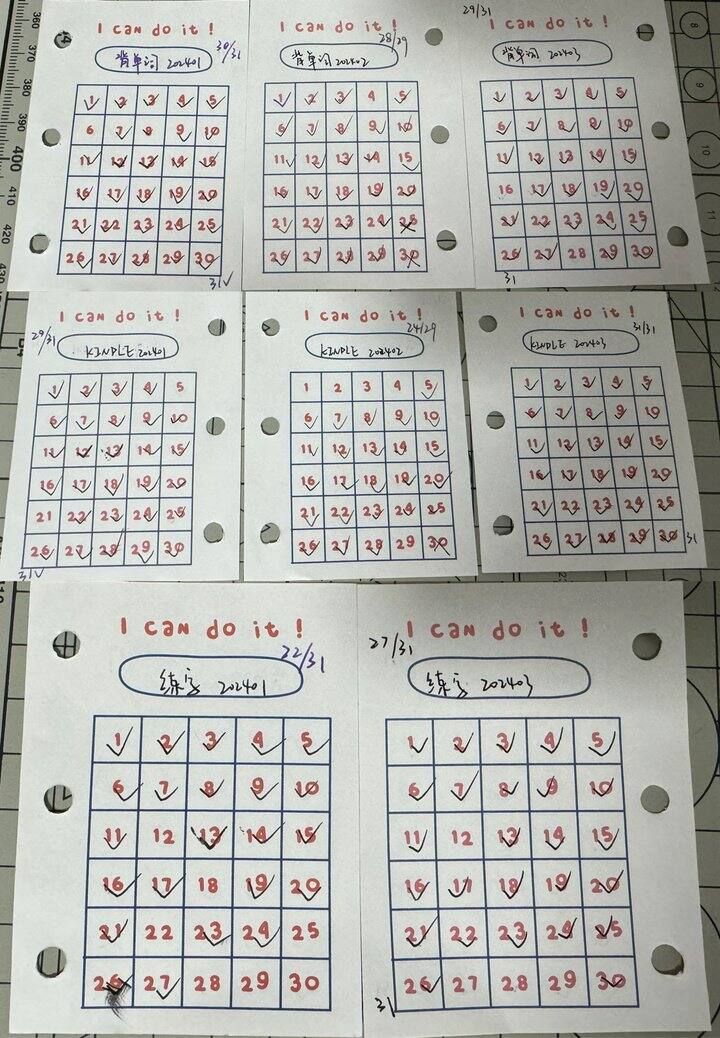 I can do it !
30/31
背单词 202401
1 2 3 4 5
6 7 8 9 10
11 12 13 14 15
16 17 18 19 20
21 22 23 24 25
26 27 28 29 30
31
I can do it !
28/29
背单词 202402
1 2 3 4 5
6 7 8 9 10
11 12 13 14 15
16 17 18 19 20
21 22 23 24 25
26 27 28 29 30
29/31
I can do it !
背单词 202403
1 2 3 4 5
6 7 8 9 10
11 12 13 14 15
16 17 18 19 20
21 22 23 24 25
26 27 28 29 30
31
I can do it !
29/31
KINDLE 202401
1 2 3 4 5
6 7 8 9 10
11 12 13 14 15
16 17 18 19 20
21 22 23 24 25
26 27 28 29 30
31
I can do it !
24/29
KINDLE 202402
1 2 3 4 5
6 7 8 9 10
11 12 13 14 15
16 17 18 19 20
21 22 23 24 25
26 27 28 29 30
I can do it !
31/31
KINDLE 202403
1 2 3 4 5
6 7 8 9 10
11 12 13 14 15
16 17 18 19 20
21 22 23 24 25
26 27 28 29 30
31
I can do it !
22/31
练字 202401
1 2 3 4 5
6 7 8 9 10
11 12 13 14 15
16 17 18 19 20
21 22 23 24 25
26 27 28 29 30
I can do it !
27/31
练字 202403
1 2 3 4 5
6 7 8 9 10
11 12 13 14 15
16 17 18 19 20
21 22 23 24 25
26 27 28 29 30
31
360
370
380
390
400
410
420
430
8
9
10
11